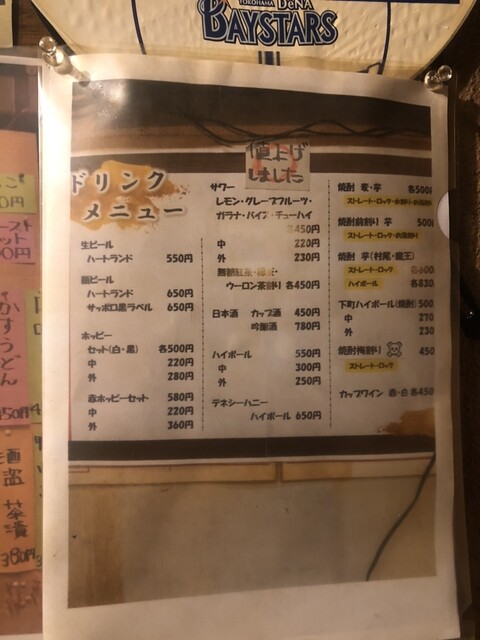 YOKOHAMA DeNA
BAYSTARS
値上げ
しました
ドリンク
メニュー
生ビール
ハートランド 550円
瓶ビール
ハートランド 650円
サッポロ黒ラベル 650円
ホッピー
セット(白・黒) 各500円
中 220円
外 280円
赤ホッピーセット 580円
中 220円
外 360円
サワー
レモン・グレープフルーツ・
ガラナ・バイス・チューハイ
各450円
中 220円
外 230円
無糖紅茶・緑茶・
ウーロン茶割り 各450円
日本酒 カップ酒 450円
吟醸酒 780円
ハイボール 550円
中 300円
外 250円
テネシーハニー
ハイボール 650円
焼酎 麦・芋 各500
ストレート・ロック・水割り・お湯割り
焼酎前割り 芋 500
ストレート・ロック・お湯割り
焼酎 芋(村尾・魔王)
ストレート・ロック 各600
ハイボール 各830
下町ハイボール(焼酎) 500
中 270
外 230
焼酎梅割り 450
ストレート・ロック
カップワイン 赤・白 各450
かすうどん
450円
茶漬
380円